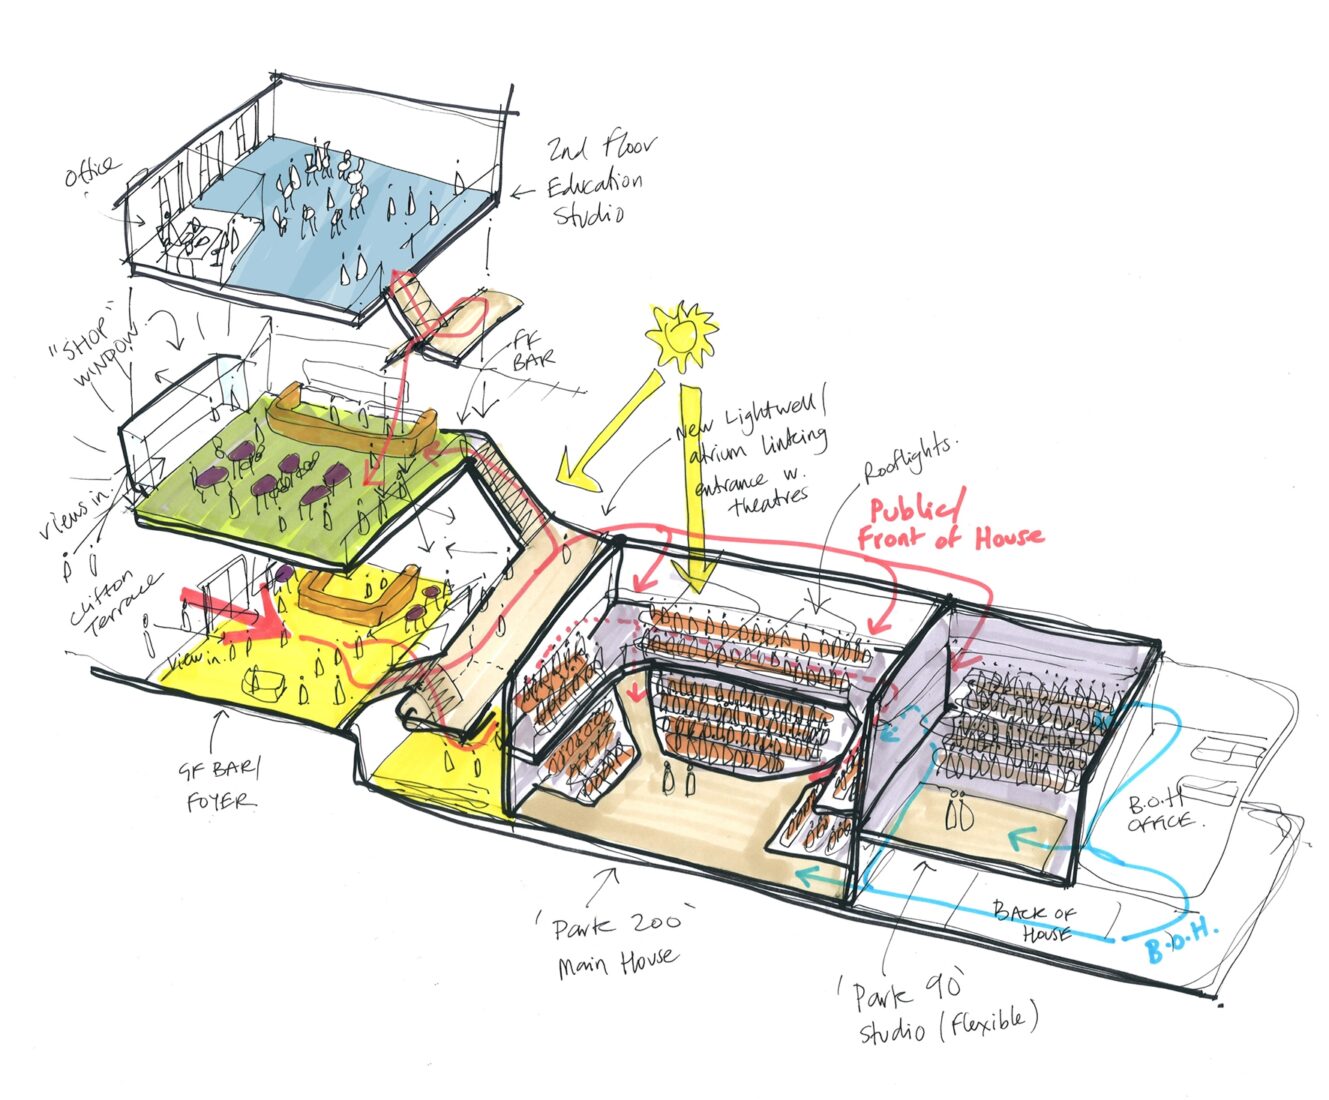 Office
2nd Floor
Education
Studio
"SHOP"
WINDOW
FF
BAR
New Lightwell/
atrium linking
entrance w.
theatres
Rooflights.
Public/
Front of House
Views in.
Clifton
Terrace
View in.
GF BAR/
FOYER
B.O.H
OFFICE.
BACK OF
HOUSE
B.O.H.
'Park 200'
Main House
'Park 90'
Studio (Flexible)